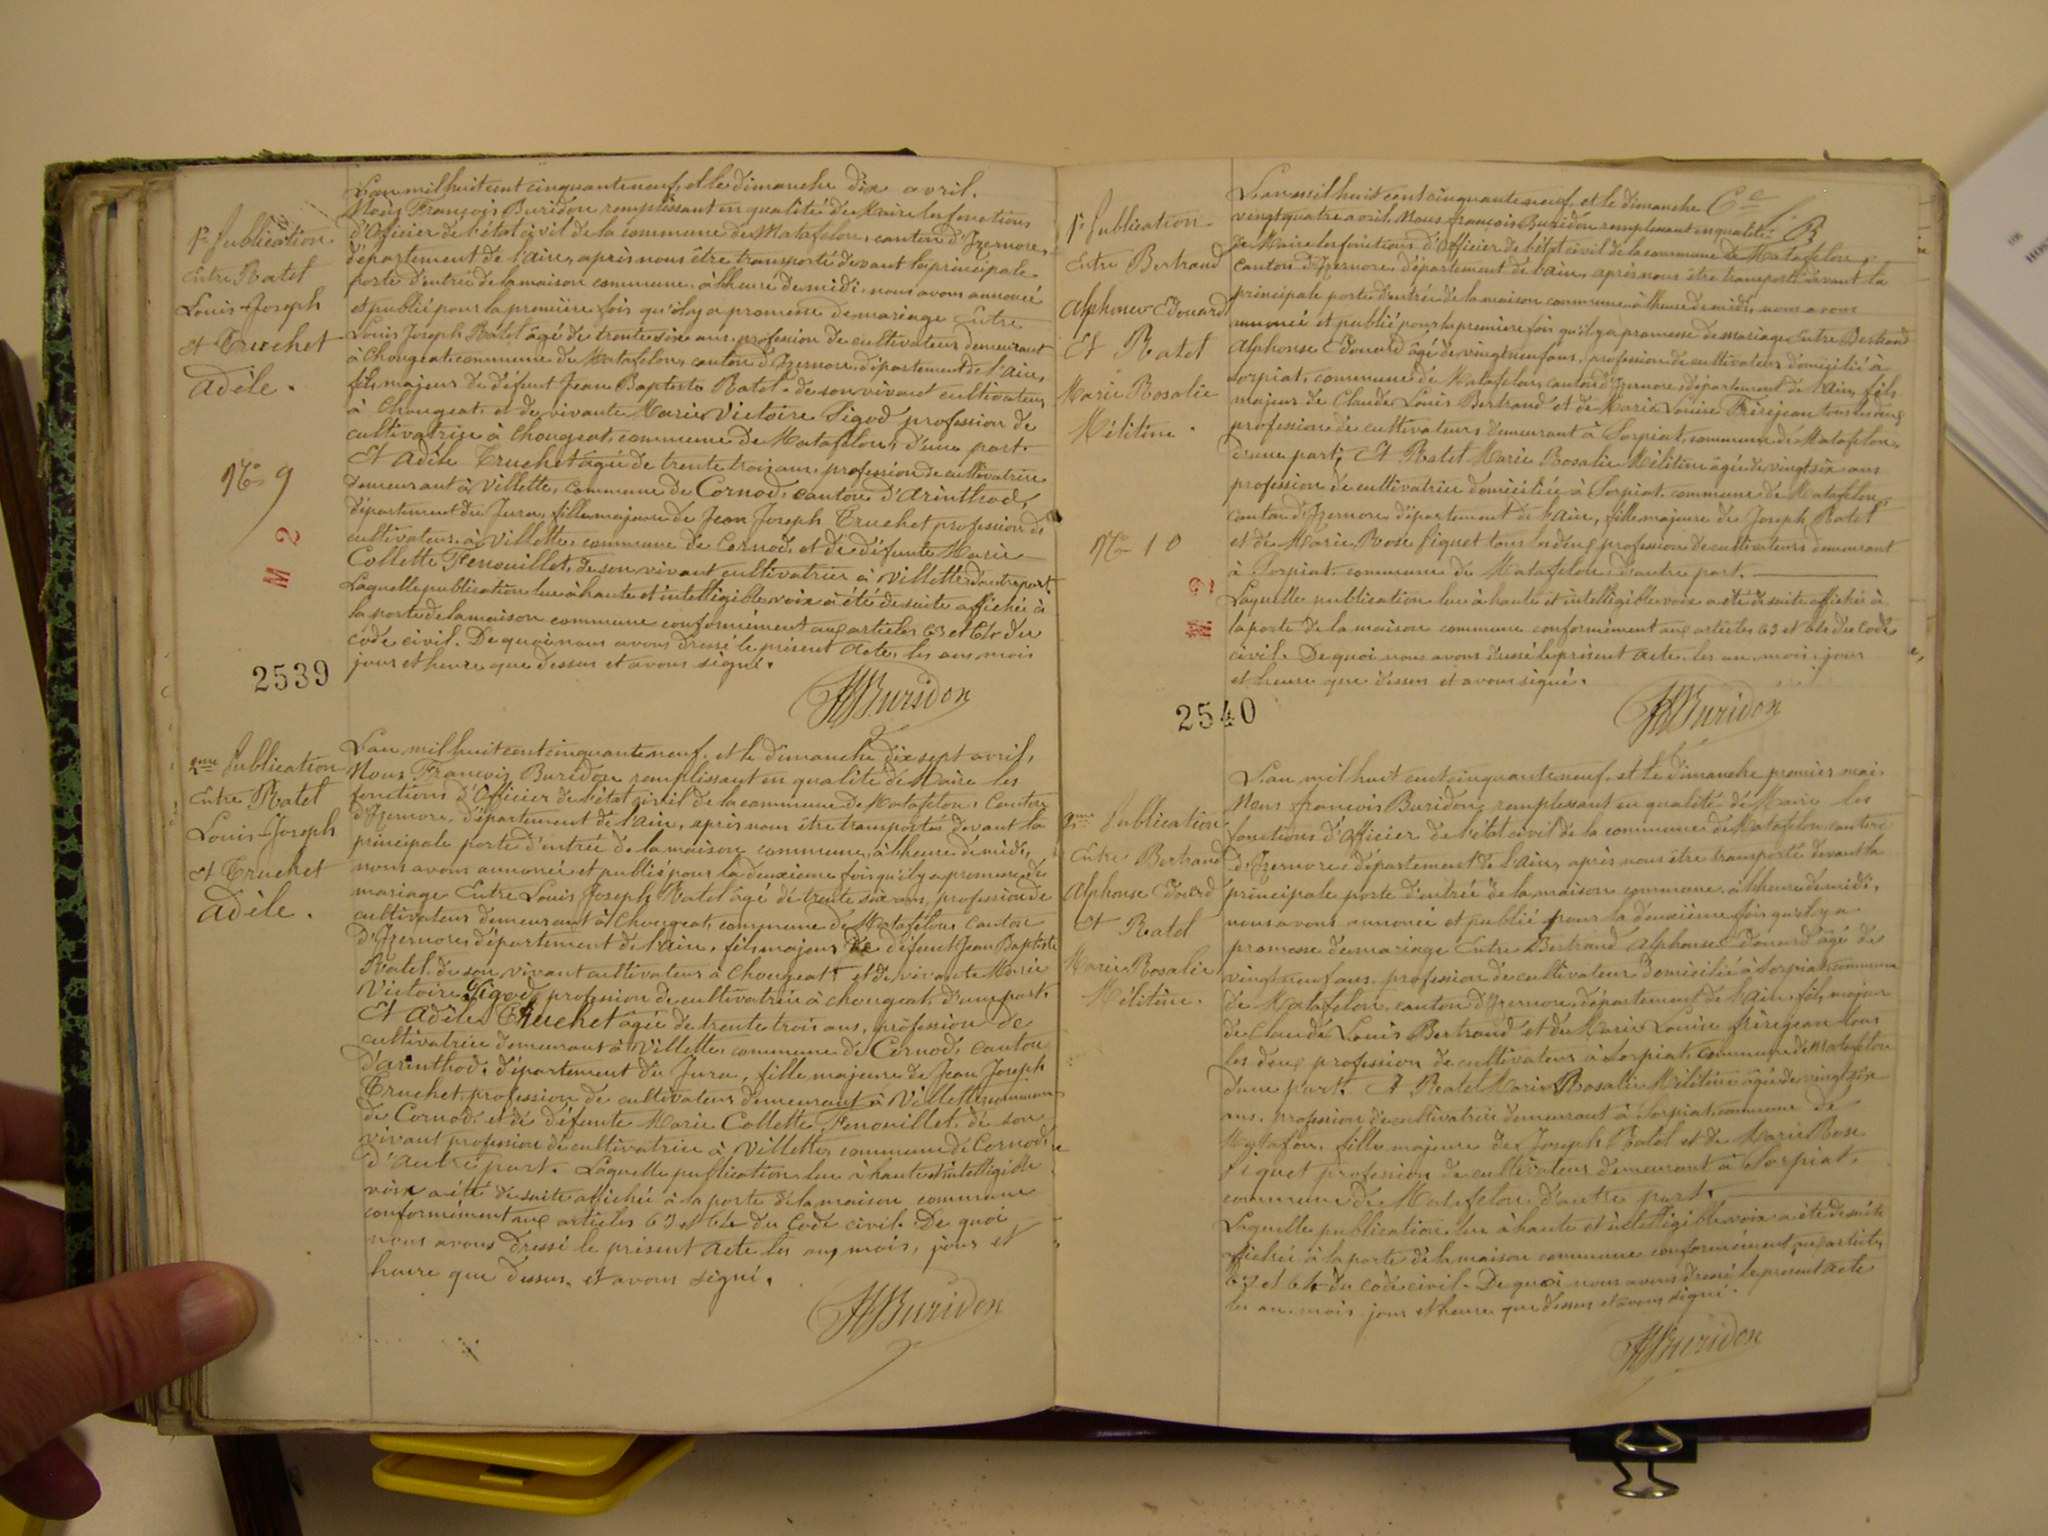 1re Publication
Entre Ratel
Louis-Joseph
et Truchet
Adèle.
No 9
M 2
2539
L'an mil huit cent cinquante neuf, et le dimanche dix avril.
Nous François Buridon remplissant en qualité de Maire les fonctions
d'Officier de l'état civil de la commune de Matafelon, canton d'Izernore,
département de l'Ain, après nous être transporté devant la principale
porte d'entrée de la maison commune à l'heure de midi, nous avons annoncé
et publié pour la première fois qu'il y a promesse de mariage Entre
Louis Joseph Ratel âgé de trente six ans, profession de cultivateur demeurant
à Chougeat, commune de Matafelon, canton d'Izernore, département de l'Ain,
fils majeur de défunt Jean Baptiste Ratel de son vivant cultivateur
à Chougeat, et de vivante Marie Victoire Sigod profession de
cultivatrice à Chougeat, commune de Matafelon, d'une part.
Et Adèle Truchet âgée de trente trois ans, profession de cultivatrice
demeurant à Villette, commune de Cornod, canton d'Arinthod,
département du Jura, fille majeure de Jean Joseph Truchet profession de
cultivateur à Villette commune de Cornod, et de défunte Marie
Collette Fenouillet, de son vivant cultivatrice à Villette d'autre part.
Laquelle publication lue à haute et intelligible voix a été de suite affichée à
la porte de la maison commune conformément aux articles 63 et 64 du
code civil. De quoi nous avons dressé le présent acte, les an, mois
jour et heure que dessus et avons signé.
Buridon
2me Publication
Entre Ratel
Louis-Joseph
et Truchet
Adèle.
L'an mil huit cent cinquante neuf, et le dimanche dix sept avril,
Nous François Buridon remplissant en qualité de Maire les
fonctions d'Officier de l'état civil de la commune de Matafelon, Canton
d'Izernore, département de l'Ain, après nous être transporté devant la
principale porte d'entrée de la maison commune, à l'heure de midi,
nous avons annoncé et publié pour la deuxième fois qu'il y a promesse de
mariage Entre Louis Joseph Ratel âgé de trente six ans, profession de
cultivateur demeurant à Chougeat, commune de Matafelon Canton
d'Izernore, département de l'Ain, fils majeur de défunt Jean Baptiste
Ratel de son vivant cultivateur à Chougeat et de vivante Marie
Victoire Sigod profession de cultivatrice à Chougeat, d'une part.
Et Adèle Truchet âgée de trente trois ans, profession de
cultivatrice demeurant à Villette, commune de Cornod, canton
d'Arinthod, département du Jura, fille majeure de Jean Joseph
Truchet profession de cultivateur demeurant à Villette commune
de Cornod, et de défunte Marie Collette Fenouillet, de son
vivant profession de cultivatrice à Villette, commune de Cornod,
d'Autre part. Laquelle publication lue à haute et intelligible
voix a été de suite affichée à la porte de la maison commune
conformément aux articles 63 et 64 du Code civil. De quoi
nous avons dressé le présent acte les an, mois, jour et
heure que dessus, et avons signé.
Buridon
1re Publication
Entre Bertrand
Alphonse Edouard
Et Ratel
Marie Rosalie
Mélitine.
No 10
2540
L'an mil huit cent cinquante neuf, et le dimanche
vingt quatre avril, Nous françois Buridon remplissant en qualité
de Maire les fonctions d'Officier de l'état civil de la commune de Matafelon,
canton d'Izernore, département de l'ain, après nous être transporté devant la
principale porte d'entrée de la maison commune à l'heure de midi, nous avons
annoncé et publié pour la première fois qu'il y a promesse de mariage Entre Bertrand
Alphonse Edouard âgé de vingt neuf ans, profession de cultivateur domicilié à
Sorpiat, commune de Matafelon, canton d'Izernore, département de l'Ain, fils
majeur de Claude Louis Bertrand et de Marie Louise Frèrejean tous les deux
profession de cultivateurs demeurant à Sorpiat, commune de Matafelon,
d'une part; Et Ratel Marie Rosalie Mélitine âgée de vingt six ans
profession de cultivatrice domiciliée à Sorpiat, commune de Matafelon,
canton d'Izernore, département de l'ain, fille majeure de Joseph Ratel
et de Marie Rose Piquet tous les deux profession de cultivateurs demeurant
à Sorpiat, commune de Matafelon d'autre part.
Laquelle publication lue à haute et intelligible voix a été de suite affichée à
la porte de la maison commune conformément aux articles 63 et 64 du Code
civil. De quoi nous avons dressé le présent acte, les an, mois, jour
et heure que dessus et avons signé.
Buridon
2me Publication
Entre Bertrand
Alphonse Edouard
Et Ratel
Marie Rosalie
Mélitine.
L'an mil huit cent cinquante neuf, et le dimanche premier mai,
Nous françois Buridon remplissant en qualité de Maire les
fonctions d'Officier de l'état civil de la commune de Matafelon canton
d'Izernore, département de l'ain, après nous être transporté devant la
principale porte d'entrée de la maison commune à l'heure de midi,
nous avons annoncé et publié pour la deuxième fois qu'il y a
promesse de mariage Entre Bertrand Alphonse Edouard âgé de
vingt neuf ans, profession de cultivateur domicilié à Sorpiat commune
de Matafelon, canton d'Izernore, département de l'ain, fils majeur
de Claude Louis Bertrand et de Marie Louise frèrejean tous
les deux profession de cultivateurs à Sorpiat, commune de Matafelon
d'une part. Et Ratel Marie Rosalie Mélitine âgée de vingt six
ans, profession de cultivatrice demeurant à Sorpiat, commune de
Matafon, fille majeure de Joseph Ratel et de Marie Rose
Piquet profession de cultivateurs demeurant à Sorpiat,
commune de Matafelon d'autre part.
Laquelle publication lue à haute et intelligible voix a été de suite
affichée à la porte de la maison commune conformément aux articles
63 et 64 du code civil. De quoi nous avons dressé le présent acte
les an, mois jour et heure que dessus et avons signé.
Buridon